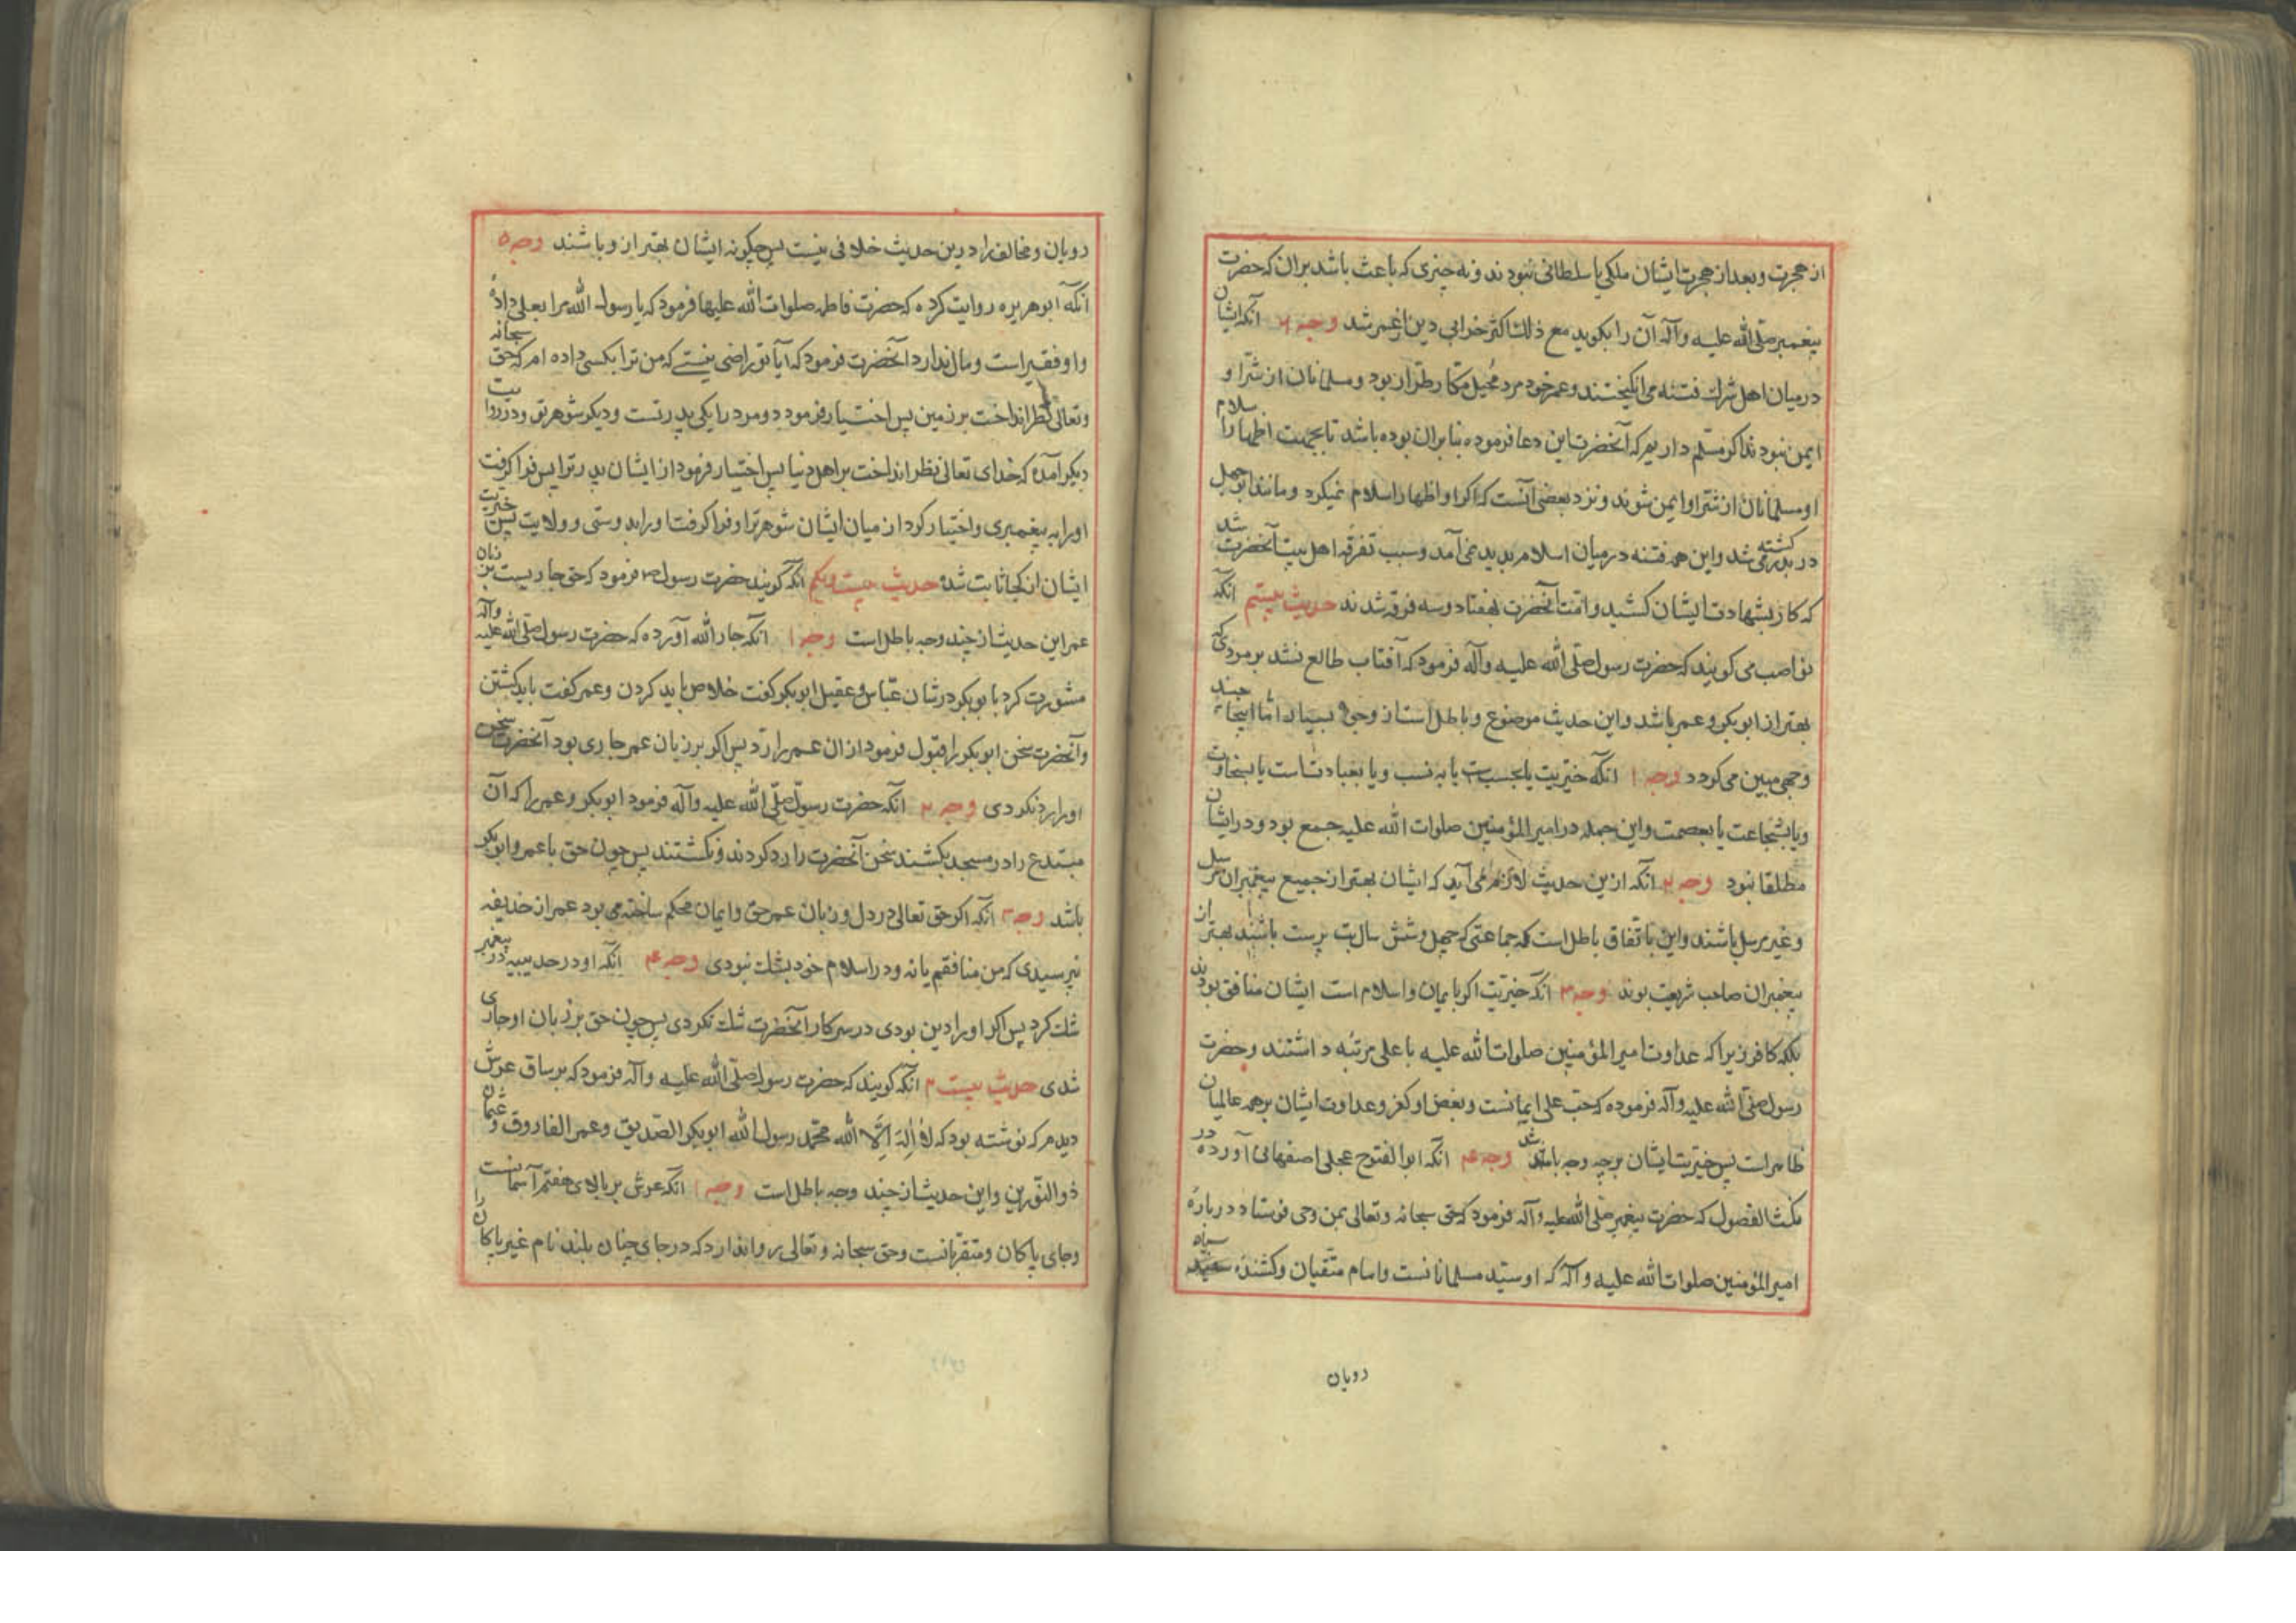 از هجرت و بعد از هجرت ایشان ملکی یا سلطانی نبودند و نه چیزی که باعث باشد بران که حضرت
پیغمبر صلّی الله علیه وآله آن را بکوید مع ذلك اکثر خرابی دین از عمر شد وجه ۲ آنکه ایشان
در میان اهل شرك فتنه می انکیختند و عمر خود مرد مُحیل مکار طرّار بود و مسلمانان از شرّ او
ایمن نبودند اکر مسلّم داریم که آنحضرت این دعا فرموده بنابران بوده باشد تا بجهت اظهار اسلام
او مسلمانان از شرّ او ایمن شوند و نزد بعضی آنست که اکر او اظهار اسلام نمیکرد و مانند ابوجهل
در بدر کشته می شد و این همه فتنه در میان اسلام پدید نمی آمد و سبب تفرقه اهل بیت آنحضرت شد
که کار بشهادت ایشان کشید و امّت آنحضرت بهفتاد و سه فرقه شدند حدیث بیستم آنکه
نواصب می کویند که حضرت رسول صلّی الله علیه وآله فرمود که آفتاب طالع نشد بر مردی که
بهتر از ابوبکر و عمر باشد و این حدیث موضوع و باطل است از وجوه بسیار امّا اینجا چند
وجهی مبین می کردد وجه ۱ آنکه خیریت یا بحسب است یا به نسب و یا بعبادت است یا بسخاوت
و یا بشجاعت یا بعصمت و این جمله در امیر المؤمنین صلوات الله علیه جمع بود و در ایشان
مطلقا نبود وجه ۲ آنکه ازین حدیث لازم می آید که ایشان بهتر از جمیع پیغمبران مرسل
و غیر مرسل باشند و این باتفاق باطل است که جماعتی که چهل و شش سال بت پرست باشند بهتر از
پیغمبران صاحب شریعت بوند وجه ۳ آنکه خیریت اکر بایمان و اسلام است ایشان منافق بودند
بلکه کافر زیرا که عداوت امیر المؤمنین صلوات الله علیه با علی مرتبه داشتند و حضرت
رسول صلّی الله علیه وآله فرموده که حبّ علی ایمانست و بغض او کفر و عداوت ایشان بر همه عالمیان
ظاهر است پس خیریت ایشان بر چه وجه باشد وجه ۴ آنکه ابو الفتوح عجلی اصفهانی آورده در
نکث الفصول که حضرت پیغمبر صلّی الله علیه وآله فرمود که حق سبحانه و تعالی بمن وحی فرستاد در بارهٔ
امیر المؤمنین صلوات الله علیه وآله که او سیّد مسلمانانست و امام متّقیان و کشندهٔ سیاه
رویان
رویان و مخالف را درین حدیث خلافی نیست پس چکونه ایشان بهتر از و باشند وجه ۵
آنکه ابو هریره روایت کرده که حضرت فاطمه صلوات الله علیها فرمود که یا رسول الله مرا بعلی دادهٔ
و او فقیر است و مال ندارد آنحضرت فرمود که آیا تو راضی نیستے که من ترا بکسی داده ام که حق سبحانه
و تعالی نظر انداخت بر زمین پس اختیار فرمود دو مرد را یکی پدر تست و دیکر شوهر تو و در روایت
دیکر آمده که خدای تعالی نظر انداخت بر اهل دنیا پس اختیار فرمود از ایشان پدر ترا پس فرا کرفت
او را به پیغمبری و اختیار کرد از میان ایشان شوهر ترا و فرا کرفت او را بدوستی و ولایت پس خیریت
ایشان از کجا ثابت شد حدیث بیست و یکم آنکه کویند حضرت رسول ص فرمود که حق جاریست بر زبان
عمر این حدیث از چند وجه باطل است وجه ۱ آنکه جار الله آورده که حضرت رسول صلّی الله علیه وآله
مشورت کرد با بوبکر در شان عبّاس و عقیل ابوبکر کفت خلاص باید کردن و عمر کفت باید کشتن
و آنحضرت سخن ابوبکر را قبول فرمود از ان عمر را ردّ پس اکر بر زبان عمر جاری بود آنحضرت سخن
او را رد نکردی وجه ۲ آنکه حضرت رسول صلّی الله علیه وآله فرمود ابوبکر و عمر را که آن
مبتدع را در مسجد بکشند سخن آنحضرت را رد کردند و نکشتند پس چون حق با عمر و ابوبکر
باشد وجه ۳ آنکه اکر حق تعالی در دل و زبان عمر حق و ایمان محکم ساخته می بود عمر از حذیفه
نپرسیدی که من منافقم یا نه و در اسلام خود بشك نبودی وجه ۴ آنکه او در حدیبیه در پیغمبر
شك کرد پس اکر او را دین بودی در سر کار آنحضرت شك نکردی پس چون حق بر زبان او جاری
شدی حدیث بیست ۲ آنکه کویند که حضرت رسول صلّی الله علیه وآله فرمود که بر ساق عرش
دیدم که نوشته بود که لا إله إلّا الله محمّد رسول الله ابوبکر الصّدیق و عمر الفاروق و عثمان
ذو النّورین و این حدیث از چند وجه باطل است وجه ۱ آنکه عرش بر بالای هفتم آسمانست
و جای پاکان و متقرّبانست و حق سبحانه و تعالی روا ندارد که در جای چنان بلند نام غیر پاکان را